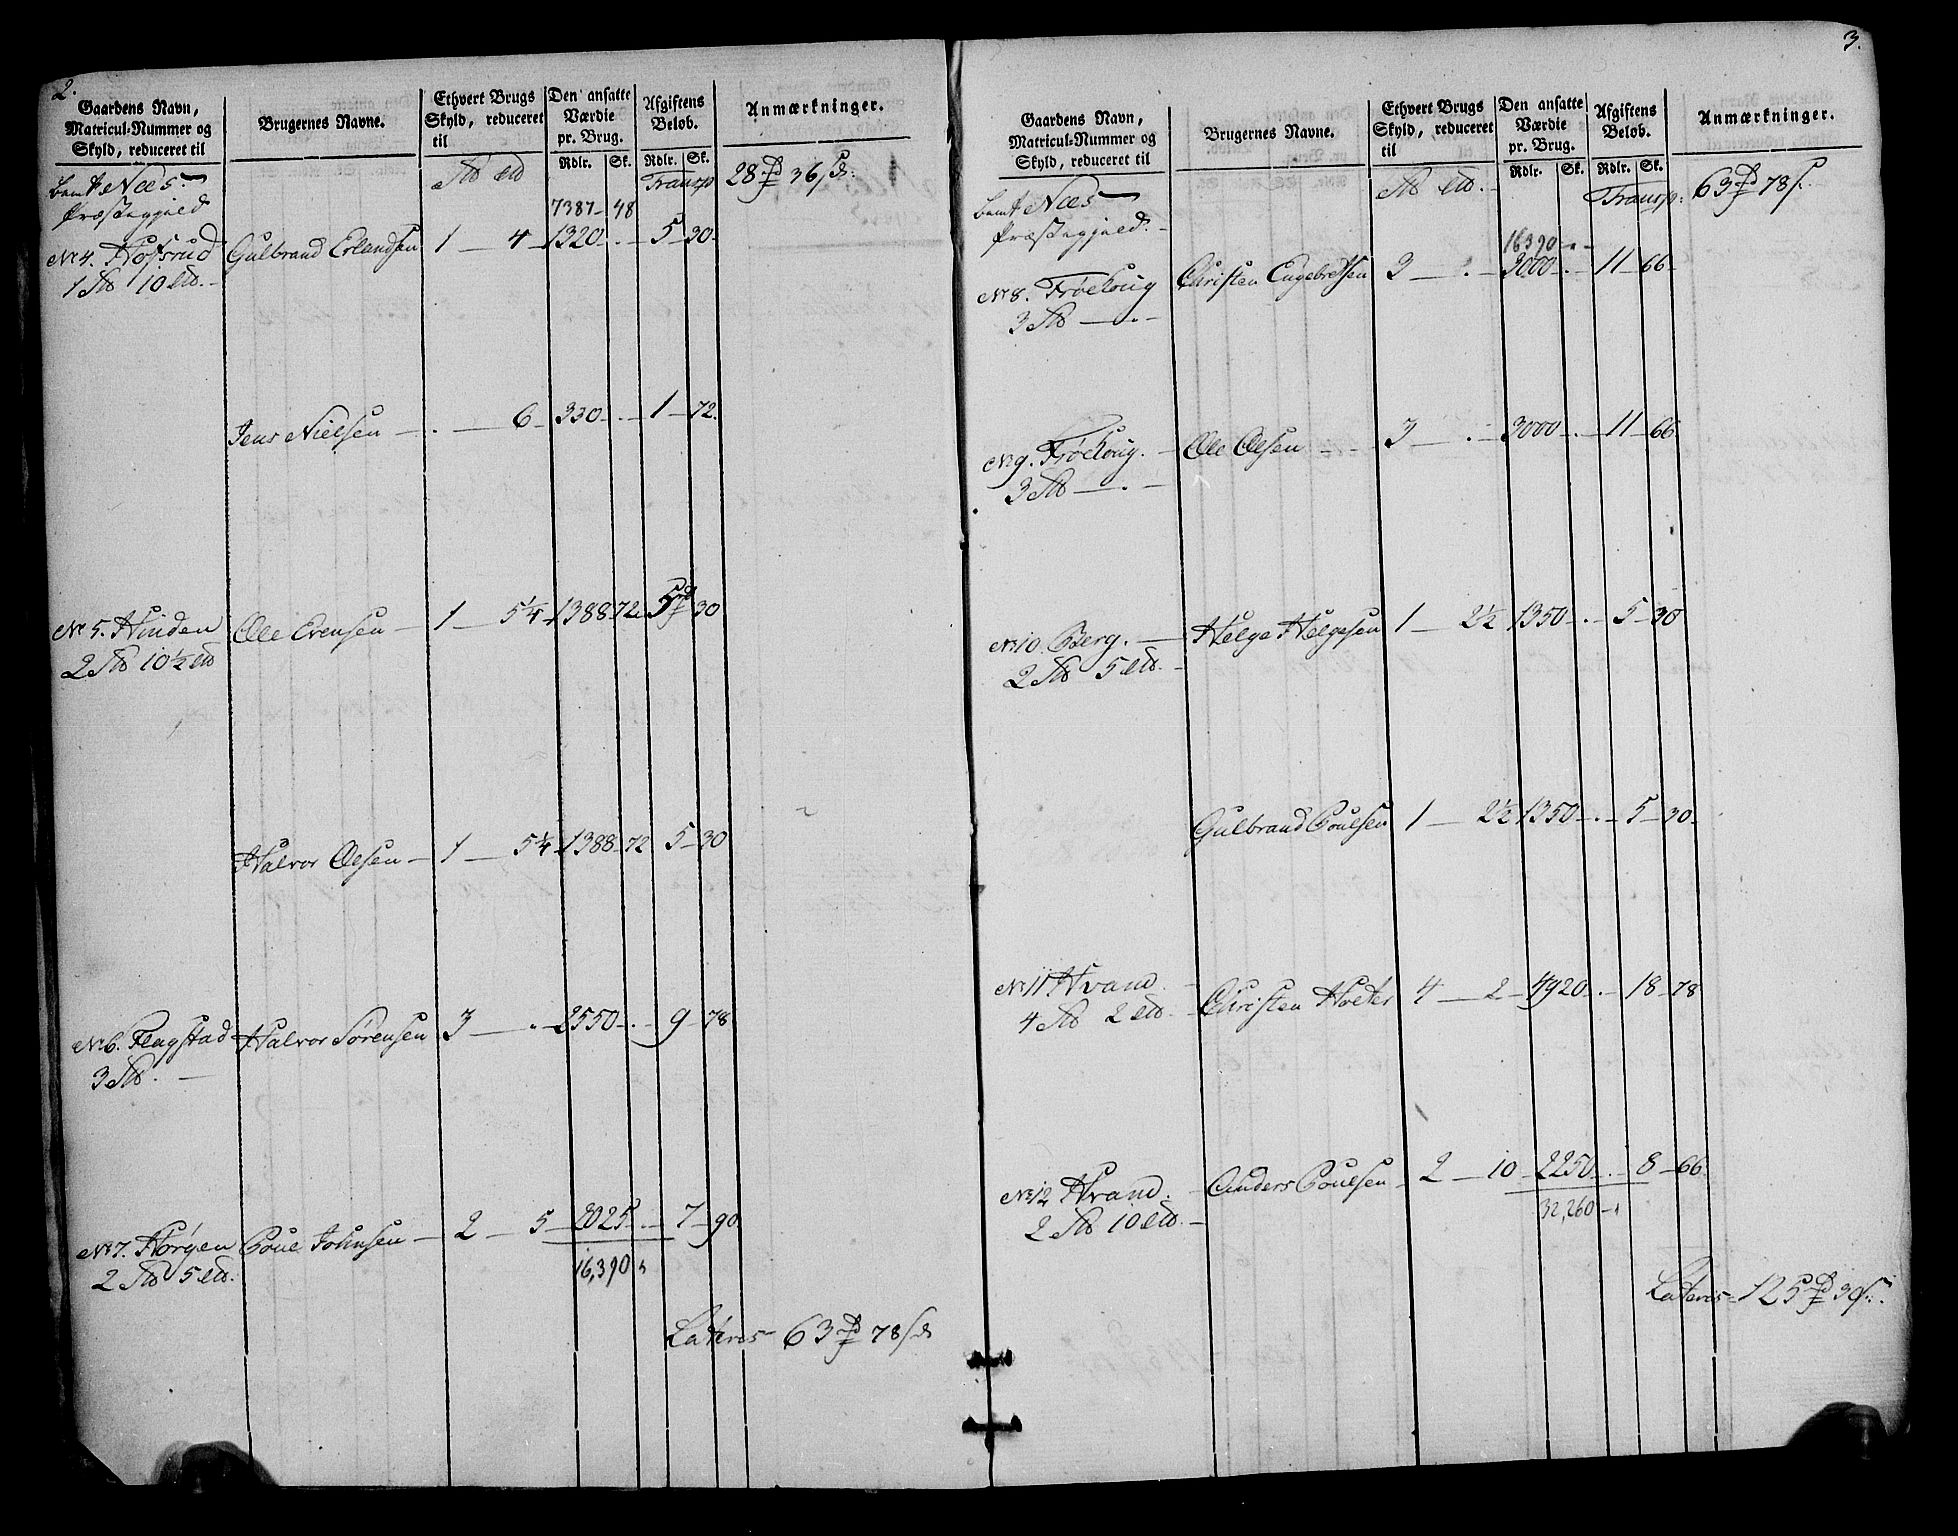 2.
Gaardens Navn, Matricul-Nummer og Skyld, reduceret til | Brugernes Navne. | Ethvert Brugs Skyld, reduceret til | Den ansatte Værdie pr. Brug. Rdlr. Sk. | Afgiftens Beløb. Rdlr. Sk. | Anmærkninger.
Næs Transp 28 36
Præstegield 7387 - 48
No 4. Hofsrud Gulbrand Erlandsen 1 — 4 - 1320 - . - 5 - 30 -
1 10
Jens Nielsen — . — 6 - 330 - . - 1 - 72.
No 5. Hinden Ole Evensen — 1 — 5¼ - 1388 - 72 5 30
2 10½
Halvor Olsen — 1 — 5¼ - 1388 - 72 5 - 30
No 6. Flagstad Halvor Sørensen 3 — . - 2550 - . - 9 - 78
3
No 7. Horgen Poul Johnsen — 2 — 5 - 2025 - . - 7 - 90
2 5 16,390
Lateris 63 78
3.
Gaardens Navn, Matricul-Nummer og Skyld, reduceret til | Brugernes Navne. | Ethvert Brugs Skyld, reduceret til | Den ansatte Værdie pr. Brug. Rdlr. Sk. | Afgiftens Beløb. Rdlr. Sk. | Anmærkninger.
Næs Transp: 63 78
Præstegield. 16390
No 8. Frøeloug Christen Engebretsen 3 — . - 3000 - . - 11 - 66 -
3 — . —
No 9. Frøeloug. Ole Olsen 3 — . - 3000 - . - 11 - 66
3 — . —
No 10. Berg. — Helge Helgesen 1 — 2½ 1350 - . - 5 - 30
2 5
Gulbrand Poulsen 1 — 2½ 1350 - . - 5 - 30 -
No 11 Hvam Christen Holter 4 — 2 - 4920 - . - 18 - 78
4 2
No 12 Hvam. Anders Poulsen — 2 — 10 - 2250 - . - 8 - 66
2 10 32,260
Lateris 125 30